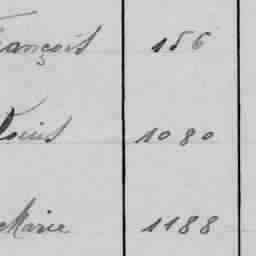 François 156
Louis 1080
Marie 1188